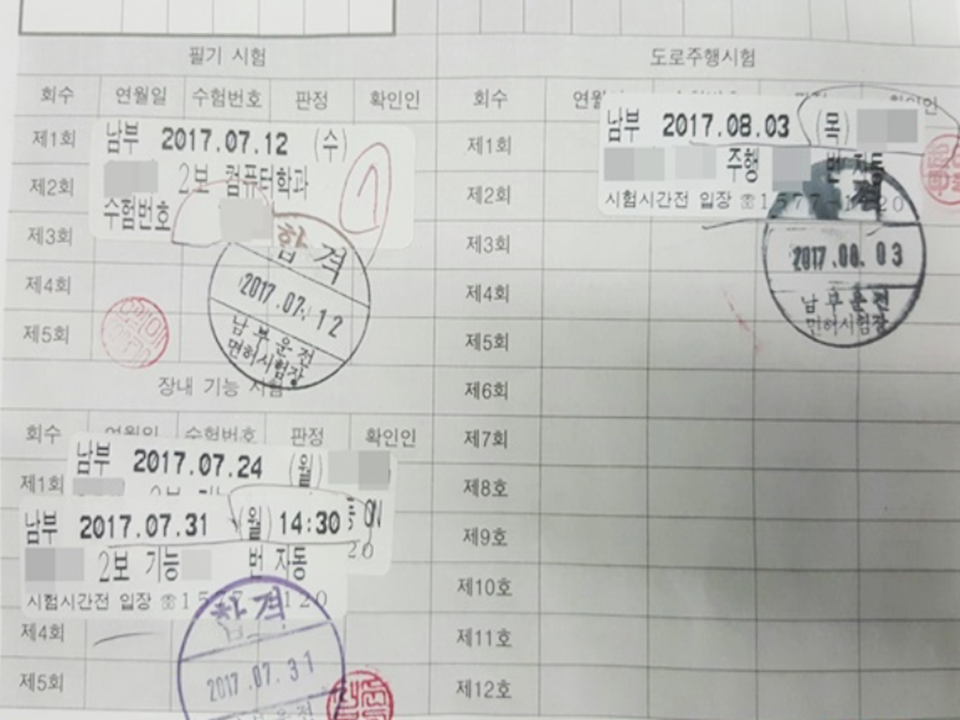 필기 시험
회수 연월일 수험번호 판정 확인인
제1회
남부 2017.07.12 (수)
제2회
2보 컴퓨터학과
수험번호
제3회
합격
제4회
2017.07.12
제5회
남부운전
면허시험장
장내 기능 시험
회수 연월일 수험번호 판정 확인인
남부 2017.07.24 (월)
제1회
남부 2017.07.31 (월) 14:30
2보 기능 번 자동
시험시간전 입장 ☏1577-1120
합격
제4회
2017.07.31
제5회
도로주행시험
회수
제1회
남부 2017.08.03 (목)
주행 번 자동
제2회
시험시간전 입장 ☏1577-1120
제3회
2017.08.03
제4회
남부운전
면허시험장
제5회
제6회
제7회
제8호
제9호
제10호
제11호
제12호